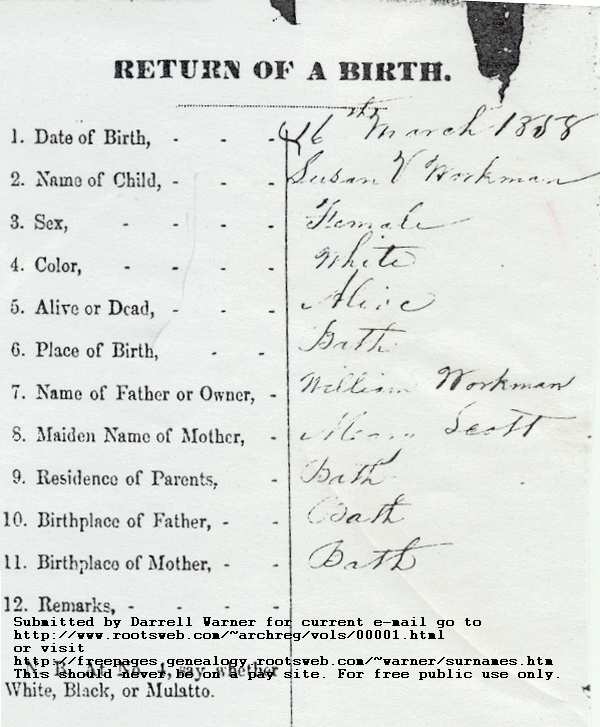 RETURN OF A BIRTH.
1. Date of Birth, - - - 16th March 1858
2. Name of Child, - - - Susan V Workman
3. Sex, - - - - Female
4. Color, - - - - White
5. Alive or Dead, - - - Alive
6. Place of Birth, - - Bath
7. Name of Father or Owner, - William Workman
8. Maiden Name of Mother, - Scott
9. Residence of Parents, - Bath
10. Birthplace of Father, - - Bath
11. Birthplace of Mother, - - Bath
12. Remarks, - - - -
Submitted by Darrell Warner for current e-mail go to
http://www.rootsweb.com/~archreg/vols/00001.html
or visit
http://freepages.genealogy.rootsweb.com/~warner/surnames.htm
N. B. At No. 4, say whether
This should never be on a pay site. For free public use only.
White, Black, or Mulatto.